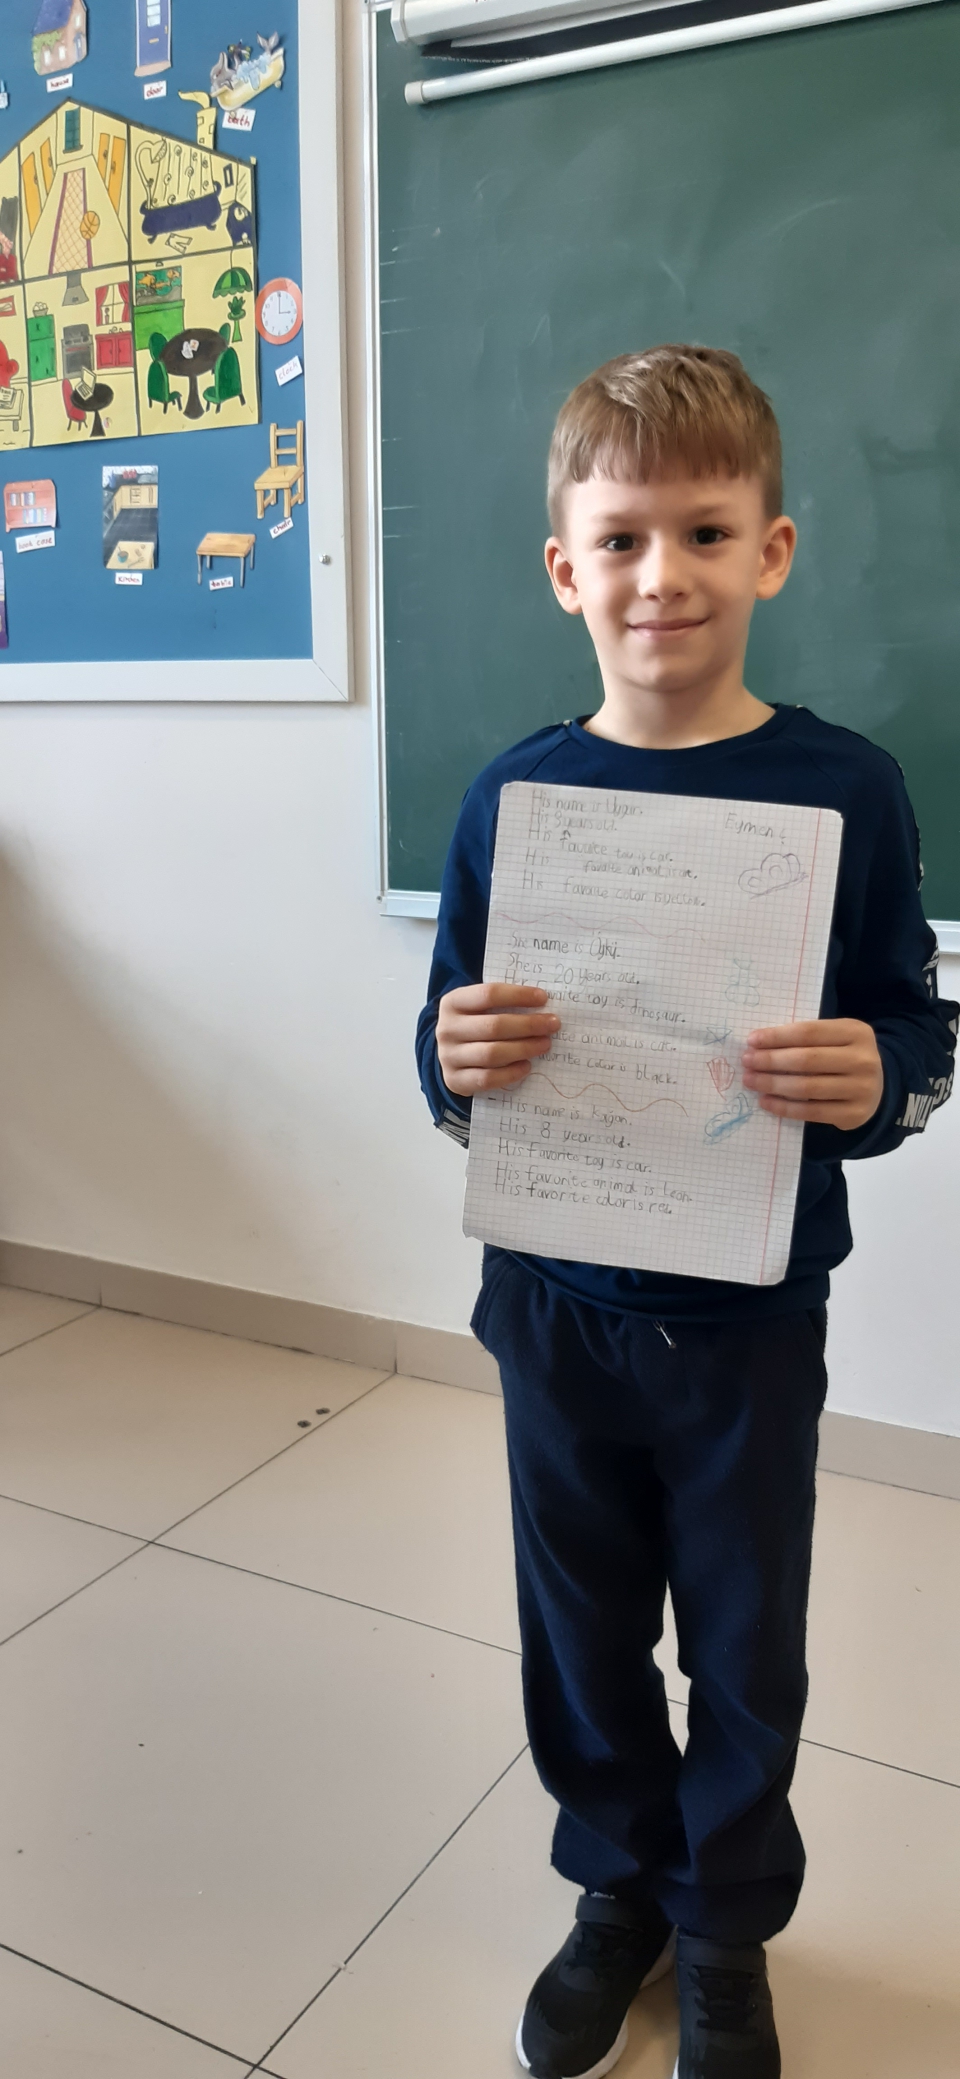 house
door
bath
clock
chair
book case
kitchen
table
Eymen
His name is Uygar.
His 8 years old.
His favaite toy is car.
His favaite animal is cat.
His favaite color is yellow.
She name is Öykü.
She is 20 years old.
Her favaite toy is dinosaur.
animal is cat.
color is black.
- His name is Kağan.
His 8 years old.
His favorite toy is car.
His favorite animal is
His favorite color is red.